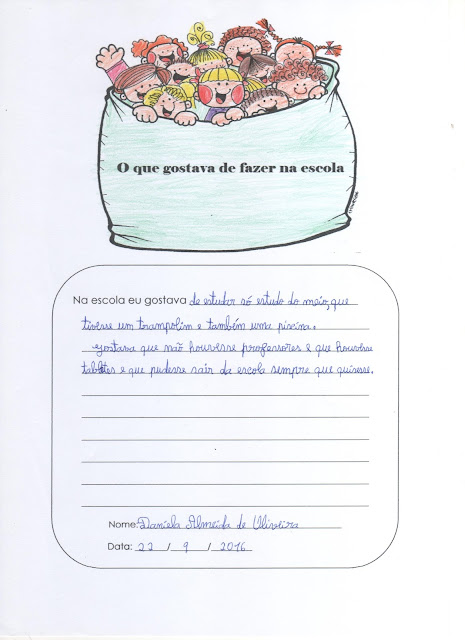 O que gostava de fazer na escola
Na escola eu gostava de estudar só estudo do meio, que
tivesse um trampolim e também uma piscina.
Gostava que não houvesse professores e que houvesse
tabletes e que pudesse sair da escola sempre que quisesse.
Nome: Daniela Almeida de Oliveira
Data: 22 / 9 / 2016